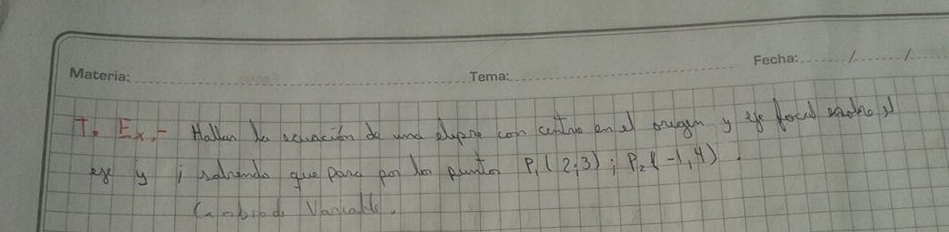 Fecha: / /
Materia: Tema:
T. Ex.- Hallar la ecuación de una elipse con centro en el origen y eje focal sobre el
eje y ; sabiendo que pasa por los puntos P₁(2;3) ; P₂(-1,4).
Cambio de Variable.